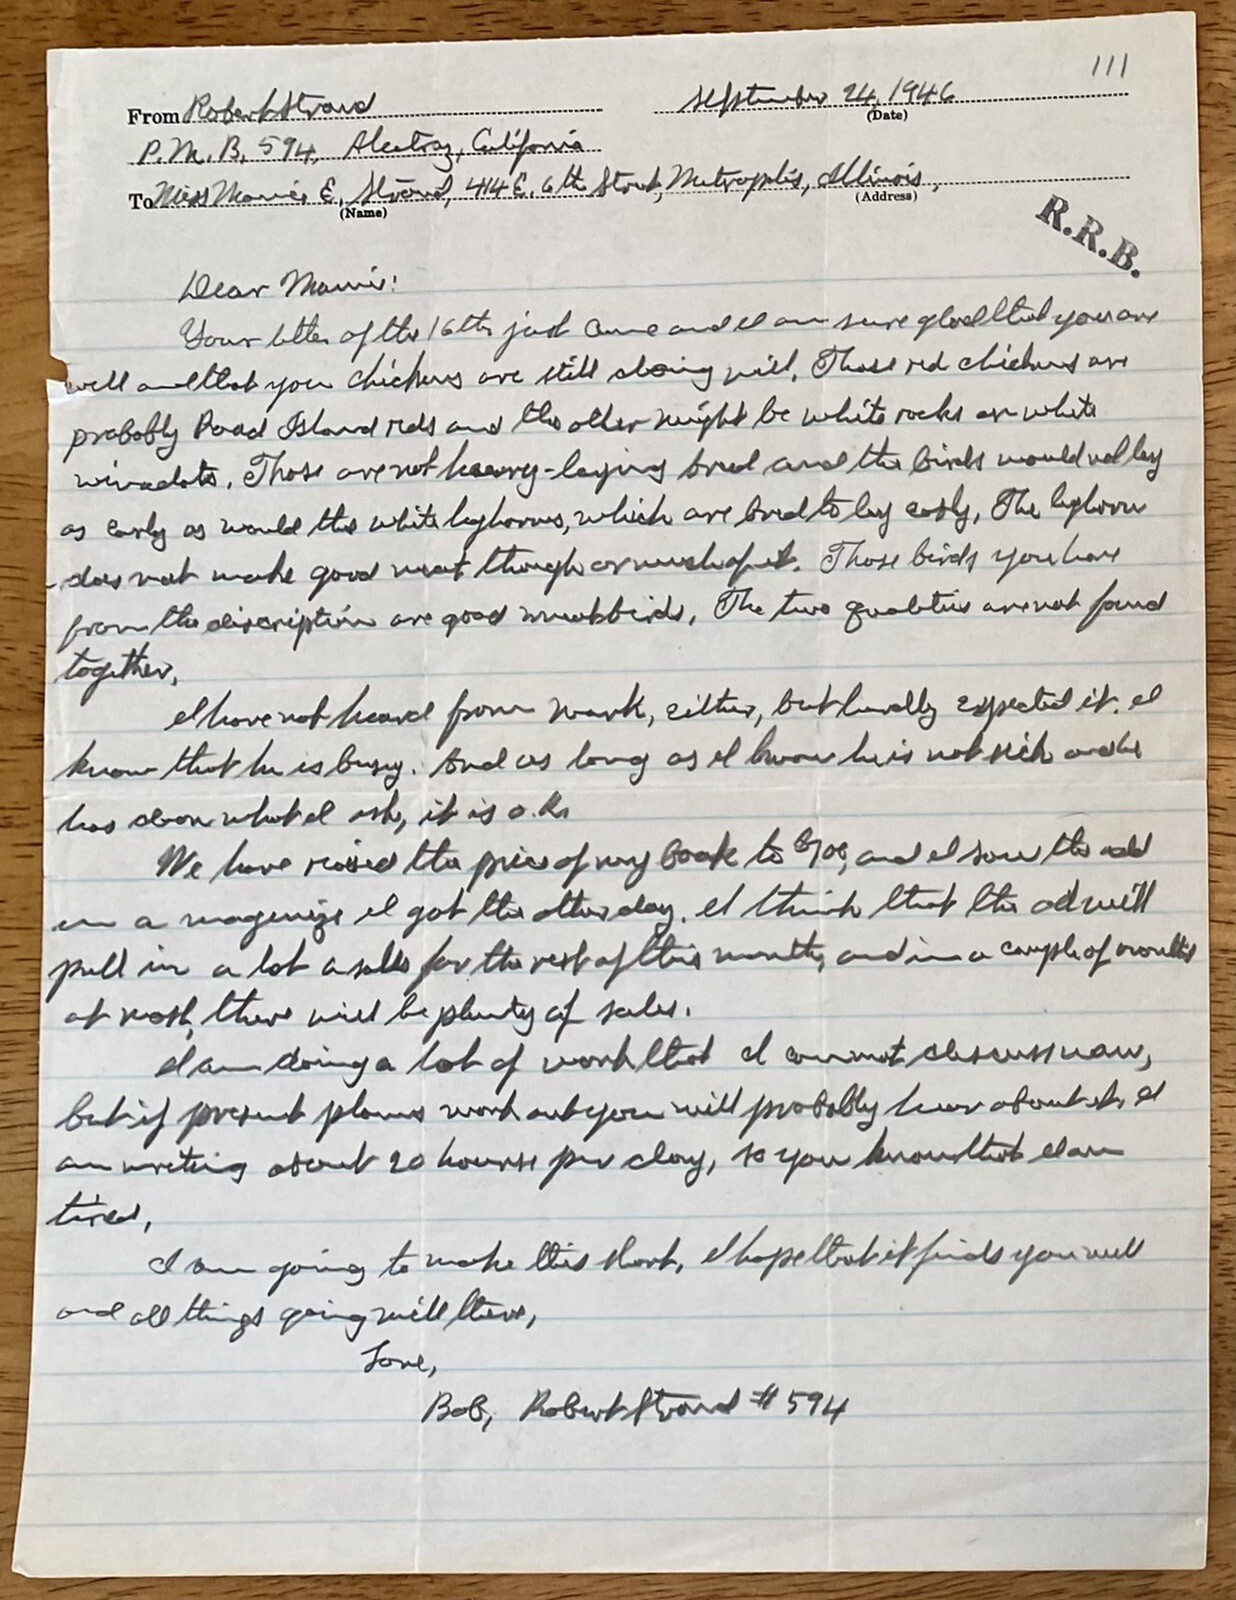 111
From Robert Stroud September 24, 1946
(Date)
P.M.B. 594, Alcatraz, California
To Miss Mamie E. Stroud, 414 E. 6th Street, Metropolis, Illinois,
(Name) (Address)
R.R.B.
Dear Mamie:
Your letter of the 16th just came and I am sure glad that you are
well and that you chickens are still doing well. Those red chickens are
probably Road Island reds and the other might be white rocks or white
winadots. Those are not heavy-laying bred and the birds would not lay
as early as would the white leghorns, which are bred to lay early. The leghorn
does not make good meat though or much of it. Those birds you have
from the discription are good meat birds. The two qualities are not found
together.
I have not heard from Mark, either, but hardly expected it. I
know that he is busy. And as long as I know he is not sick and he
has done what I ask, it is o.k.
We have raised the price of my book to and I saw the add
in a magenize I got the other day. I think that the ad will
pull in a lot a sales for the rest of this month, and in a couple of months
at most, there will be plenty of sales.
I am doing a lot of work that I can not discuss now,
but if present plans work out you will probably hear about it. I
am writing about 20 hours per day, so you know that I am
tired.
I am going to make this short. I hope that it finds you well
and all things going well there.
Love,
Bob, Robert Stroud #594